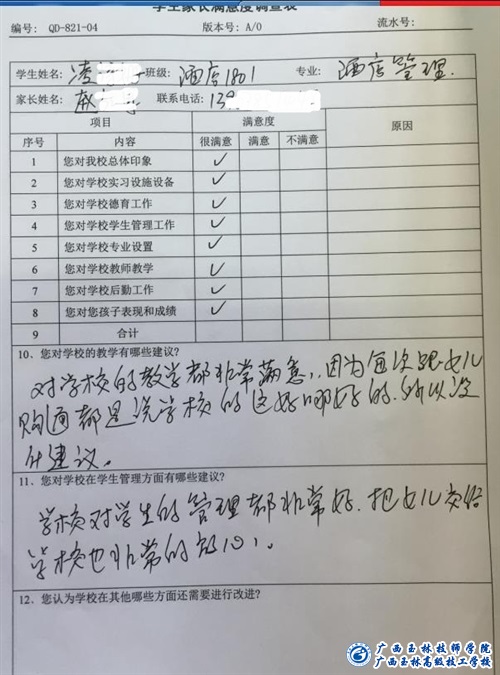 学生家长满意度调查表
编号: QD-821-04 版本号: A/0 流水号:
学生姓名: 班级: 酒店1801 专业: 酒店管理.
家长姓名: 联系电话: 139
项目 满意度 原因
序号 内容 很满意 满意 不满意
1 您对我校总体印象 ✓
2 您对学校实习设施设备 ✓
3 您对学校德育工作 ✓
4 您对学校学生管理工作 ✓
5 您对学校专业设置 ✓
6 您对学校教师教学 ✓
7 您对学校后勤工作 ✓
8 您对您孩子表现和成绩 ✓
9 合计
10、您对学校的教学有哪些建议?
对学校的教学都非常满意,因为每次跟女儿
沟通都是说学校的这好哪好的.所以没
什建议。
11、您对学校在学生管理方面有哪些建议?
学校对学生的管理都非常好.把女儿交给
学校也非常的放心,.
12、您认为学校在其他哪些方面还需要进行改进?
广西玉林技师学院
广西玉林高级技工学校